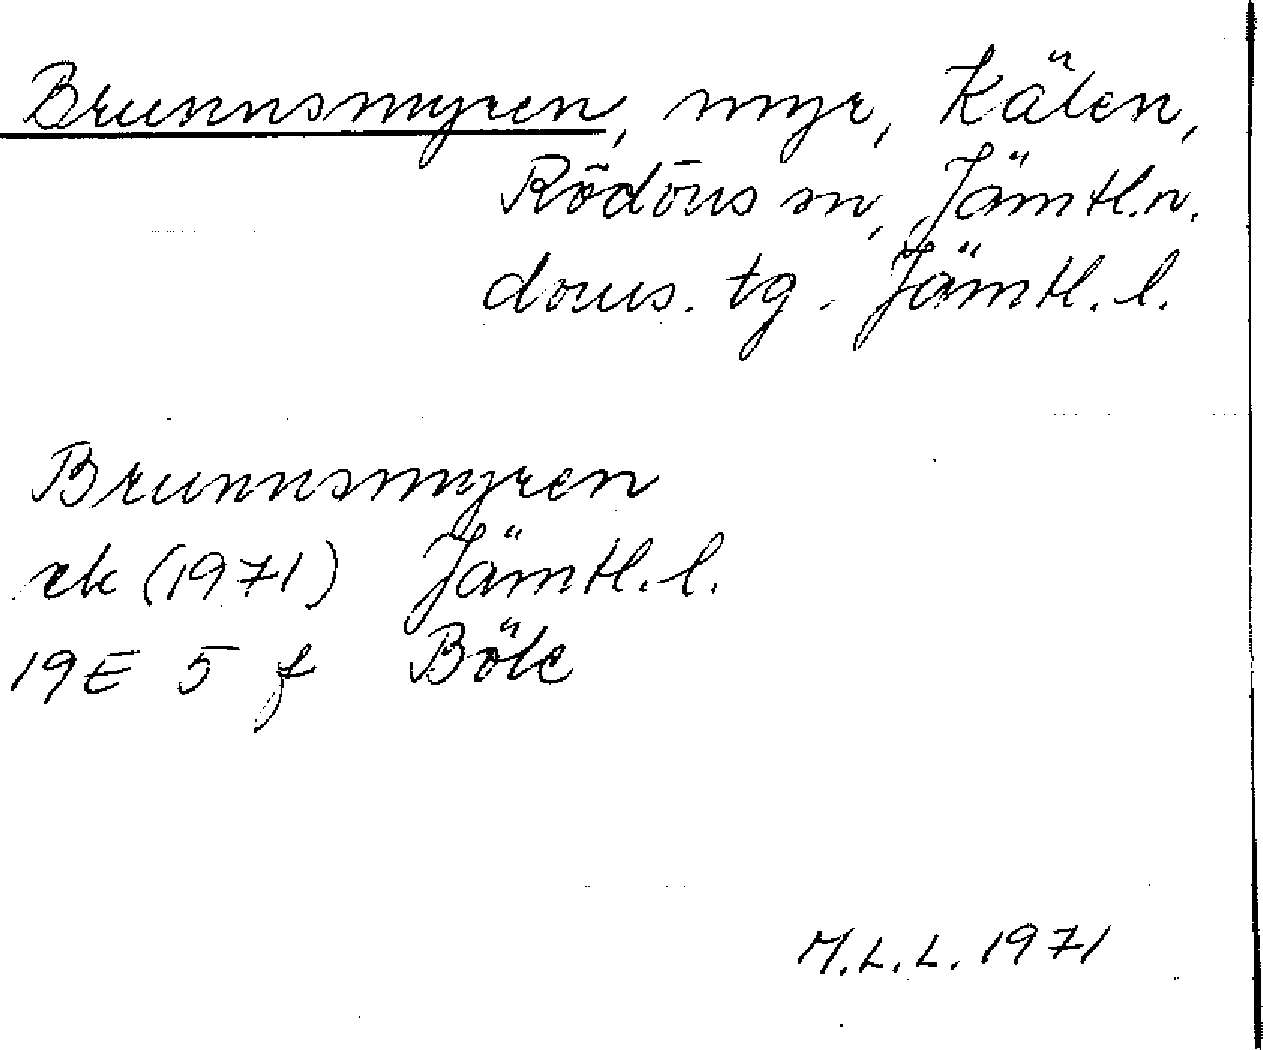 Brunnsmyren, myr, Kälen,
Rödöns sn, Jämtl.n.
doms. tg. Jämtl. l.
Brunnsmyren
ek (1971) Jämtl. l.
19E 5 f Böle
M.L.L. 1971